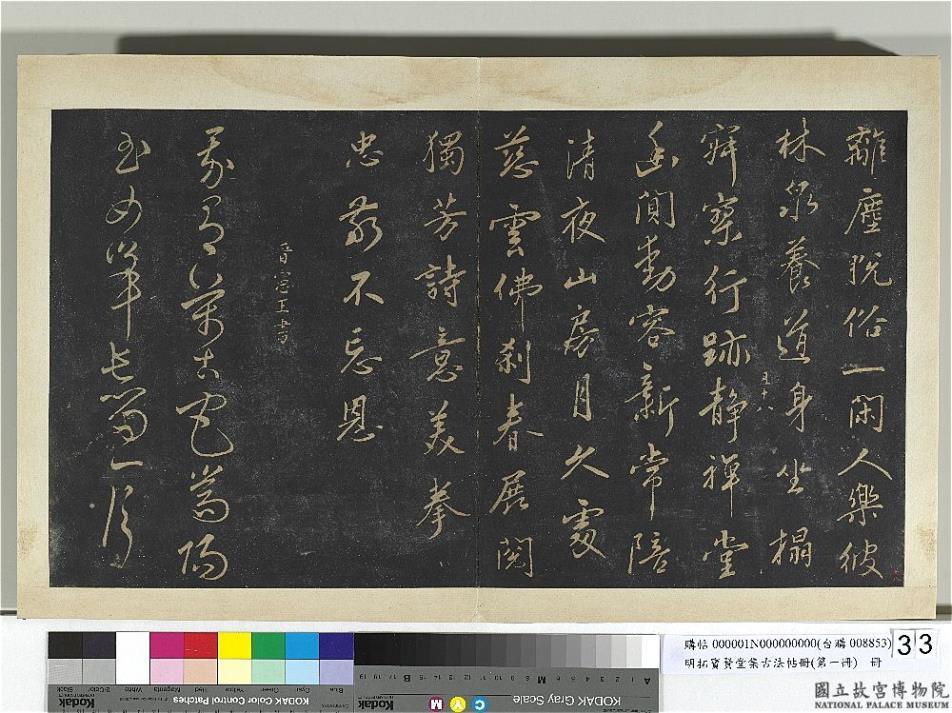 離塵脫俗一閑人樂彼
林泉養道身坐榻
五十八
行跡靜禪堂
幽閒動容新常陪
清夜山房月久處
慈雲佛刹春展閱
獨芳詩意美拳
忠敬不忘恩
晉 王書
我有萬古宅嵩陽
玉女峯長留一片
購帖 000001N000000000(台購 008853)
明拓寶賢堂集古法帖冊(第一冊) 冊
33
KODAK Color Control Patches
KODAK Gray Scale
Kodak
Blue Cyan Green Yellow Red Magenta White 3-Color Black
A 1 2 3 4 5 6 M 8 9 10 11 12 13 14 15 B 17 18 19
C Y M
國立故宮博物院
NATIONAL PALACE MUSEUM